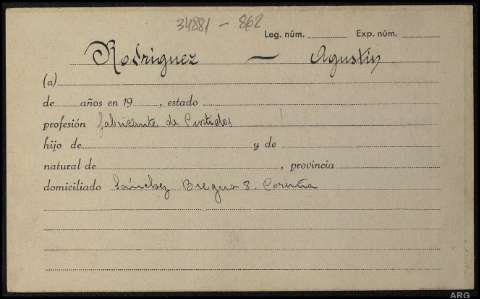 34881 - 862
Leg. núm. Exp. núm.
Rodriguez — Agustín
(a)
de años en 19 , estado
profesión fabricante de Curtidos
hijo de y de
natural de , provincia
domiciliado Sánchez Bregua 3. Coruña
ARG